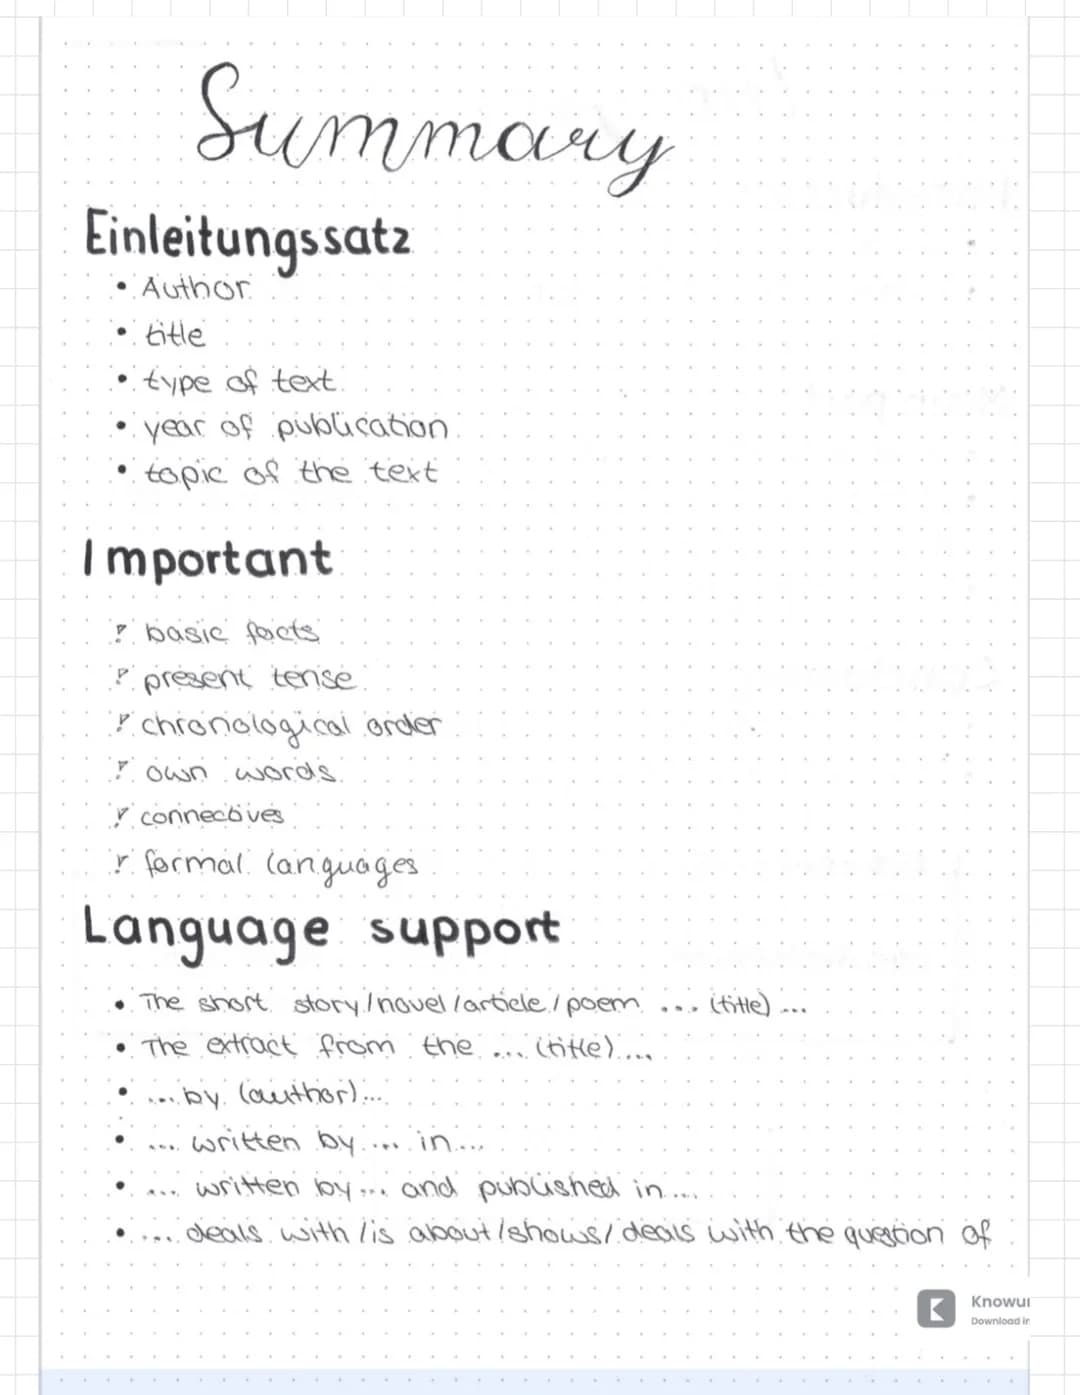 Summary
Einleitungssatz
• Author
• title
• type of text
• year of publication
• topic of the text
Important
! basic facts
! present tense
! chronological order
! own words
! connectives
! formal languages
Language support
• The short story/novel/article/poem ... (title) ...
• The extract from the ... (title) ...
• ... by (author) ...
• ... written by ... in ...
• ... written by ... and published in ...
• ... deals with/is about/shows/deals with the question of
Knowu
Download in